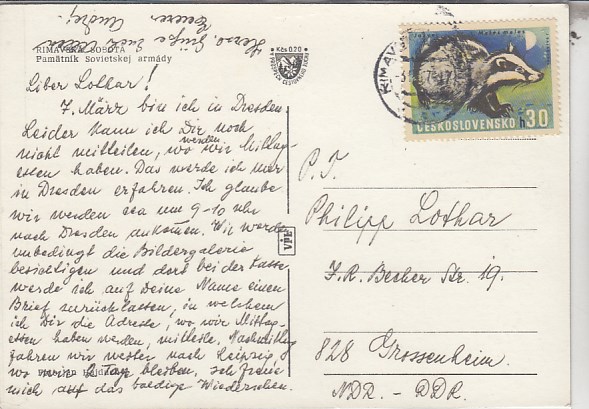 Herzl. Grüße Euch allen
Euerer
Andrej
RIMAVSKÁ SOBOTA
Pamätník Sovietskej armády
Kčs 0,20
Lieber Lothar!
7. März bin ich in Dresden.
Leider kann ich Dir noch
nicht mitteilen, wo wir Mittag-
werden
essen haben. Das werde ich nur
in Dresden erfahren. Ich glaube
wir werden ca um 9-10 Uhr
nach Dresden ankommen. Wir werden
unbedingt die Bildergalerie
besichtigen und dort bei der Kasse
werde ich auf Deine Name einen
Brief zurücklassen, in welchem
ich Dir die Adresse, wo wir Mittag-
essen haben werden, mitteile. Nachmittag
fahren wir weiter nach Leipzig,
wo wir Tage bleiben. Ich freue
mich auf das baldige Wiedersehen.
VDL
RIMAVSKÁ
Jazvec Meles meles
ČESKOSLOVENSKO
30 h
P. T.
Philipp Lothar
J. R. Becher Str. 19.
828 Grossenheim
NDR. - DDR.